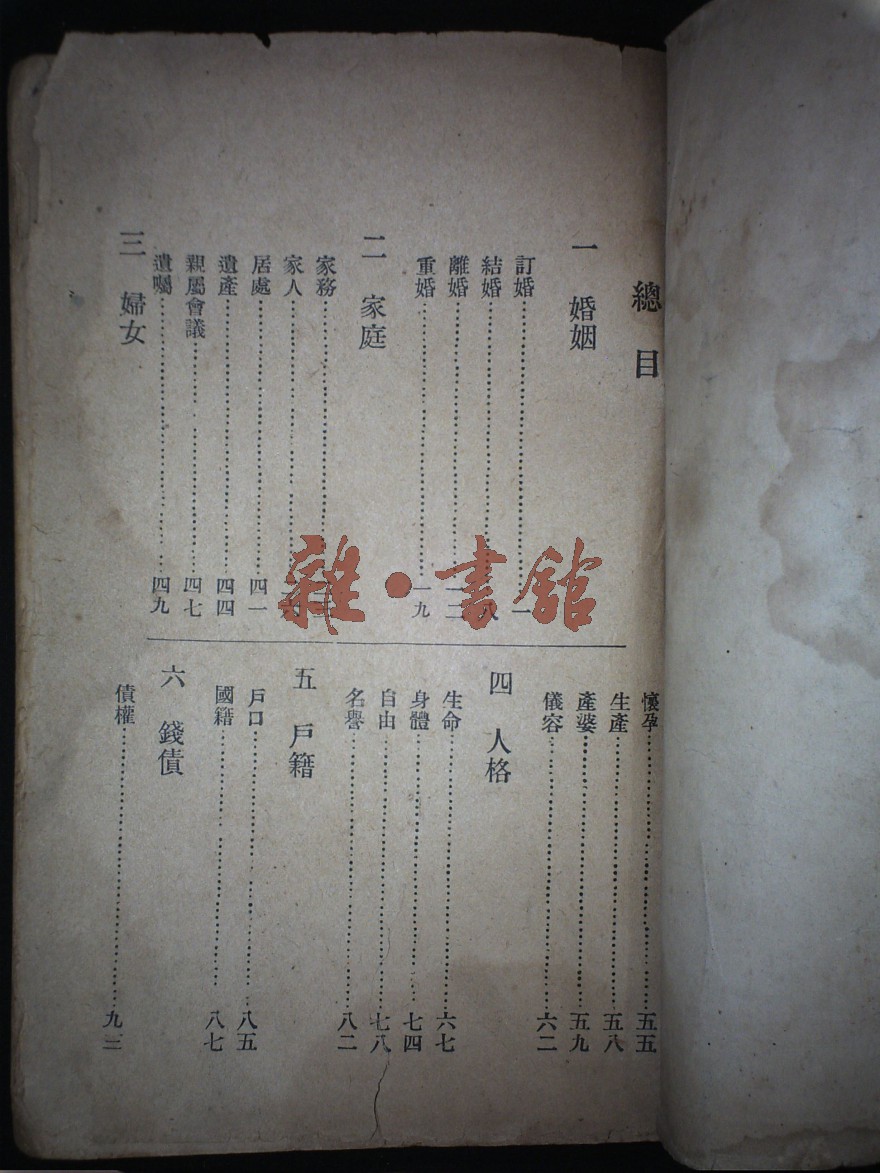 總目
一 婚姻
訂婚……一
結婚……八
離婚……一二
重婚……一九
二 家庭
家務……
家人……
居處……四一
遺產……四四
親屬會議……四七
遺囑……四九
三 婦女
懷孕……五五
生產……五八
產婆……五九
儀容……六二
四 人格
生命……六七
身體……七四
自由……七八
名譽……八二
五 戶籍
戶口……八五
國籍……八七
六 錢債
債權……九三
雜·書館